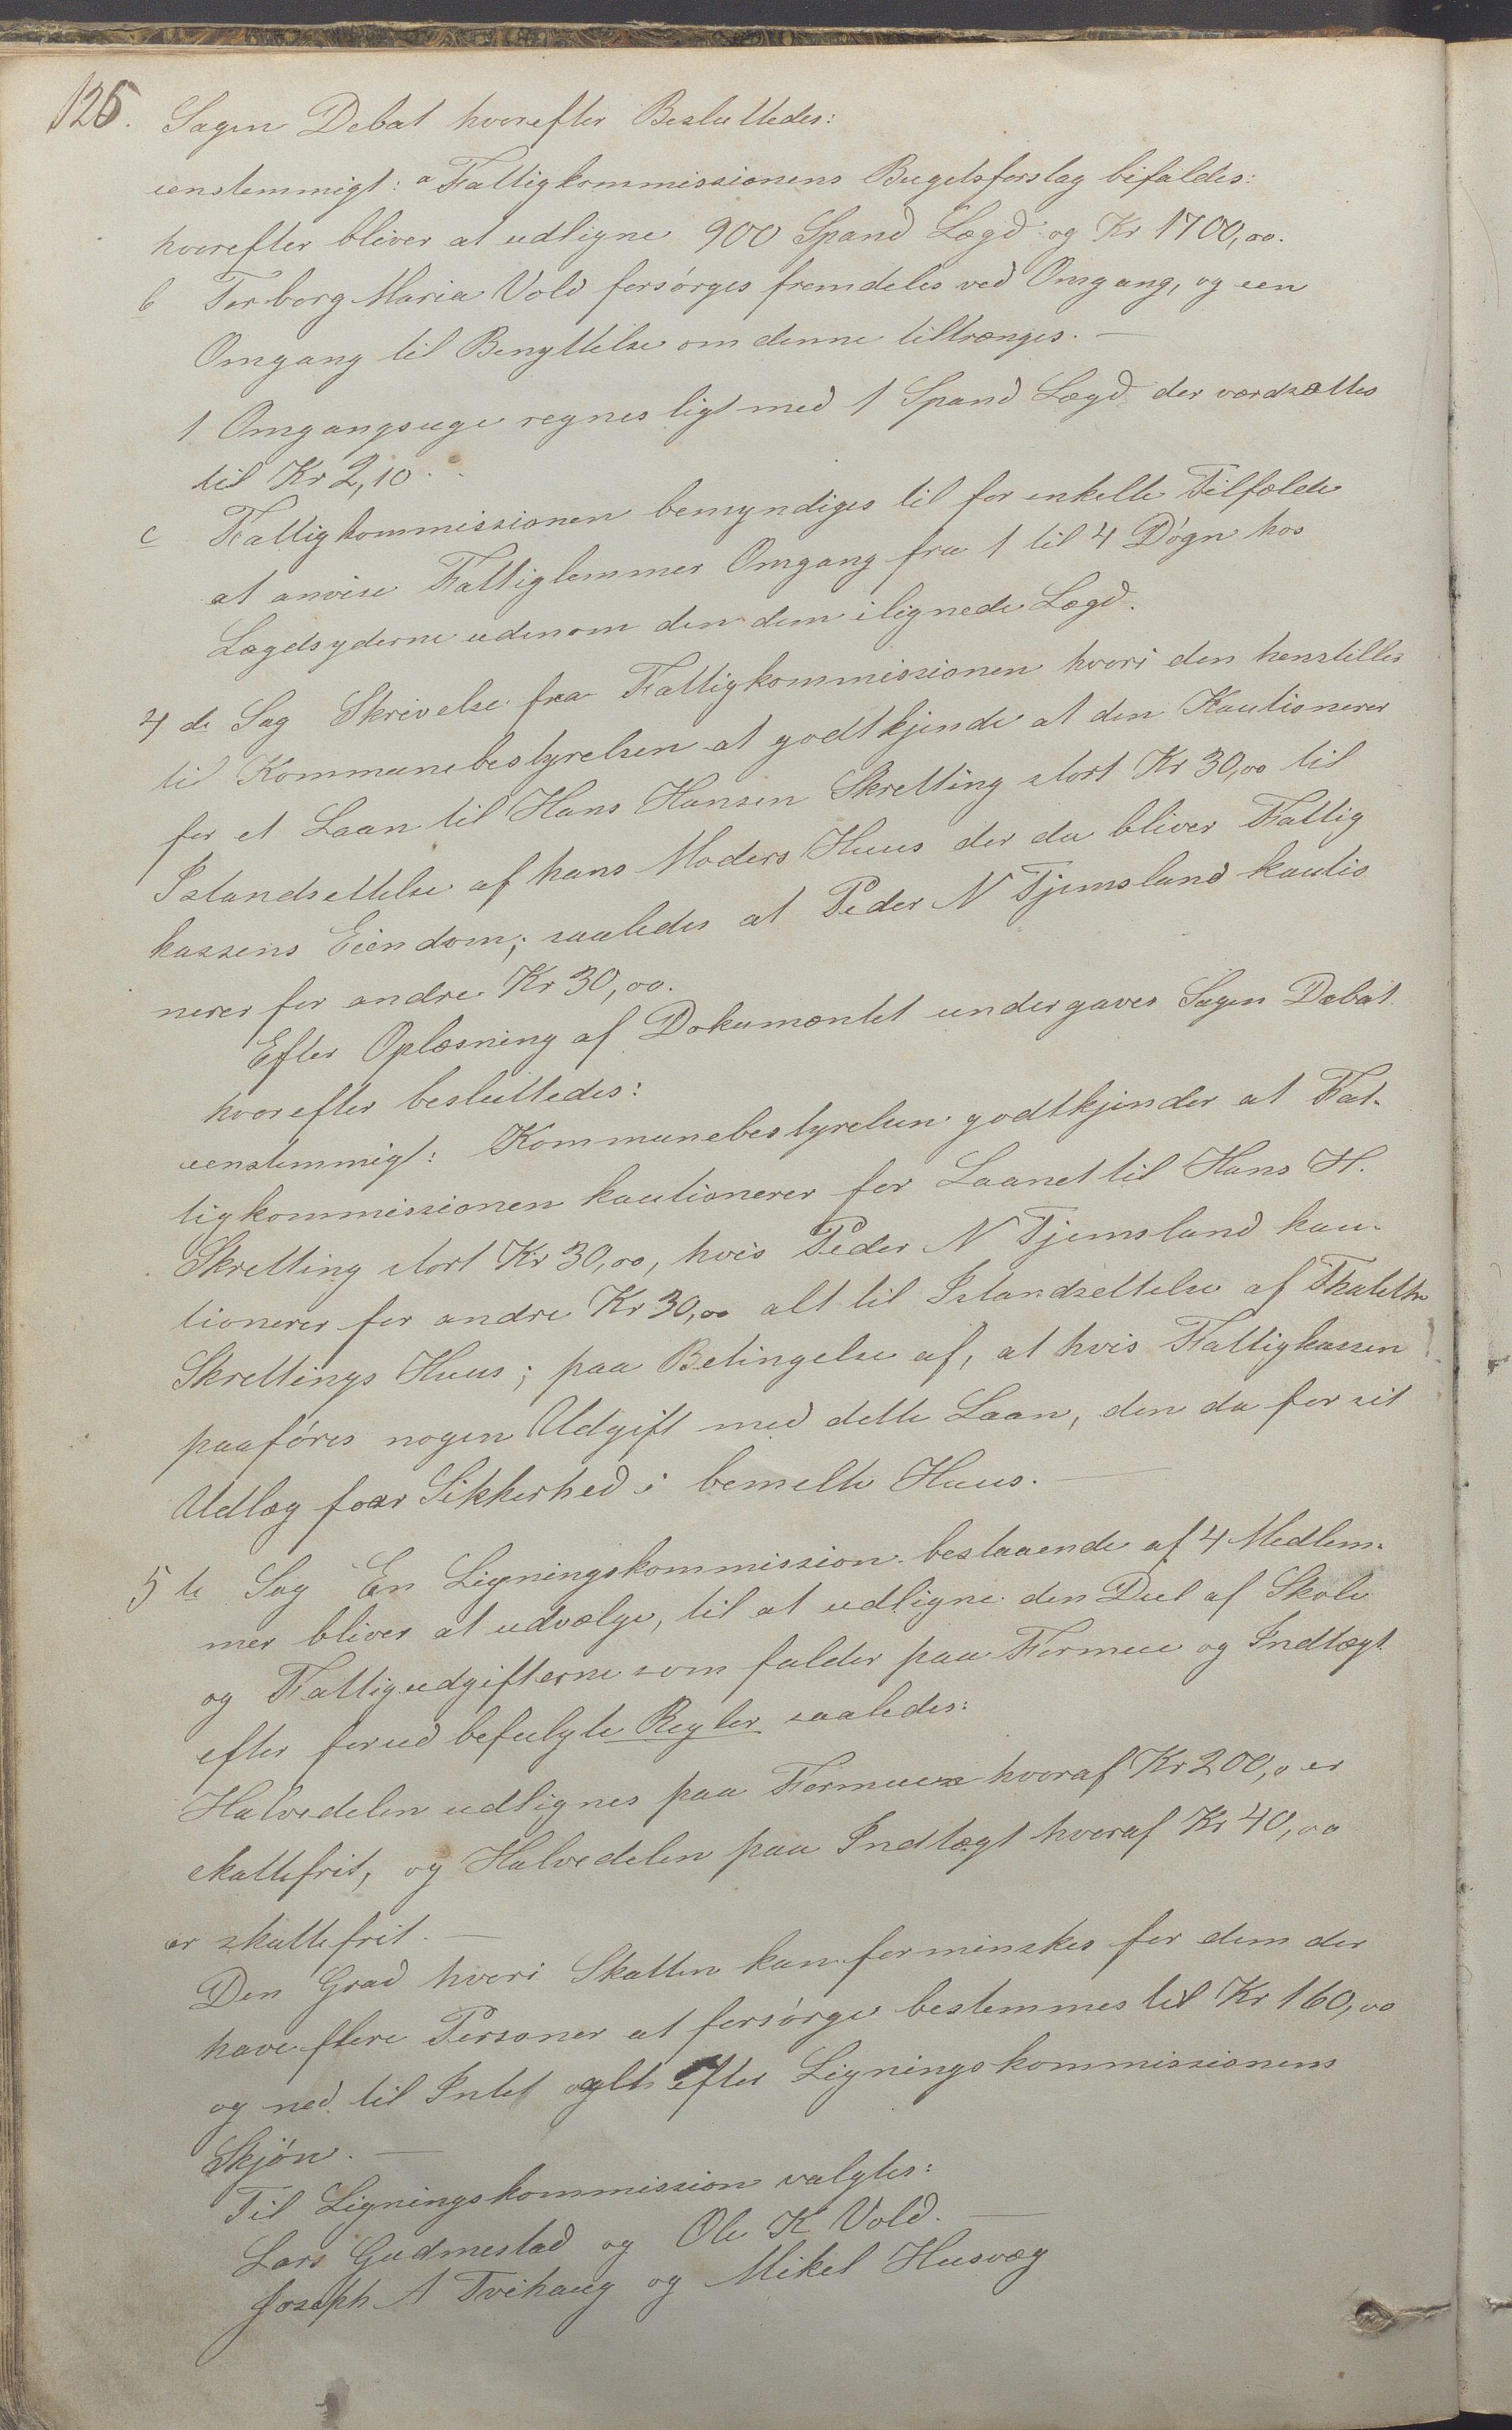 126.
Sagen Debat hvorefter Besluttedes:
eenstemmigt: a Fattigkommissionens Bugetsforslag bifaldes:
hvorefter bliver at udligne 900 Spand Lægd og Kr 1700,00.
b Torborg Maria Vold forsørges fremdeles ved Omgang, og een
Omgang til Benyttelse om denne tiltrænges. —
1 Omgangsuge regnes ligt med 1 Spand Lægd der værdsættes
til Kr 2,10.
c Fattigkommissionen bemyndiges til for enkelte Tilfælde
at anvise Fattiglemmer Omgang fra 1 til 4 Døgn hos
Lægdsyderne udenom den dem ilignede Lægd.
4de Sag Skrivelse fra Fattigkommissionen hvori den henstilles
til Kommunebestyrelsen at godtkjende at den Kautionerer
for et Laan til Hans Hansen Skretting stort Kr 30,00 til
Istandsettelse af hans Moders Huus der da bliver Fattig
kassens Eiendom; saaledes at Peder N Tjemsland kautio
nerer for andre Kr 30,00.
Efter Oplæsning af Dokumæntet undergaves Sagen Debat
hvorefter besluttedes:
eenstemmigt: Kommunebestyrelsen godtkjender at Fat-
tigkommissionen kautionerer for Laanet til Hans H.
Skretting stort Kr 30,00, hvis Peder N Tjemsland kau-
tionerer for andre Kr 30,00 alt til Istandsettelse af
Skrettings Huus; paa Betingelse af, at hvis Fattigkassen
paaføres nogen Udgift med dette Laan, den da for sit
Udlæg faar Sikkerhed i bemelte Huus. —
5te Sag En Ligningskommission bestaaende af 4 Medlem-
mer bliver at udvælge, til at udligne den Deel af Skole
og Fattigudgifterne som falder paa Formue og Indtægt
efter forud befulgte Regler saaledes:
Halvedelen udlignes paa Formue hvoraf Kr 200,0 er
skattefrit, og Halvedelen paa Indtægt hvoraf Kr 40,00
er skattefrit. —
Den Grad hvori Skatten kan forminskes for dem der
have flere Personer at forsørge bestemmes til Kr 160,00
og ned til Intet alt efter Ligningskommissionens
Skjøn. —
Til Ligningskommission valgtes:
Lars Gudmestad og Ole K Vold. —
Joseph A Tvihaug og Mikel Husvæg